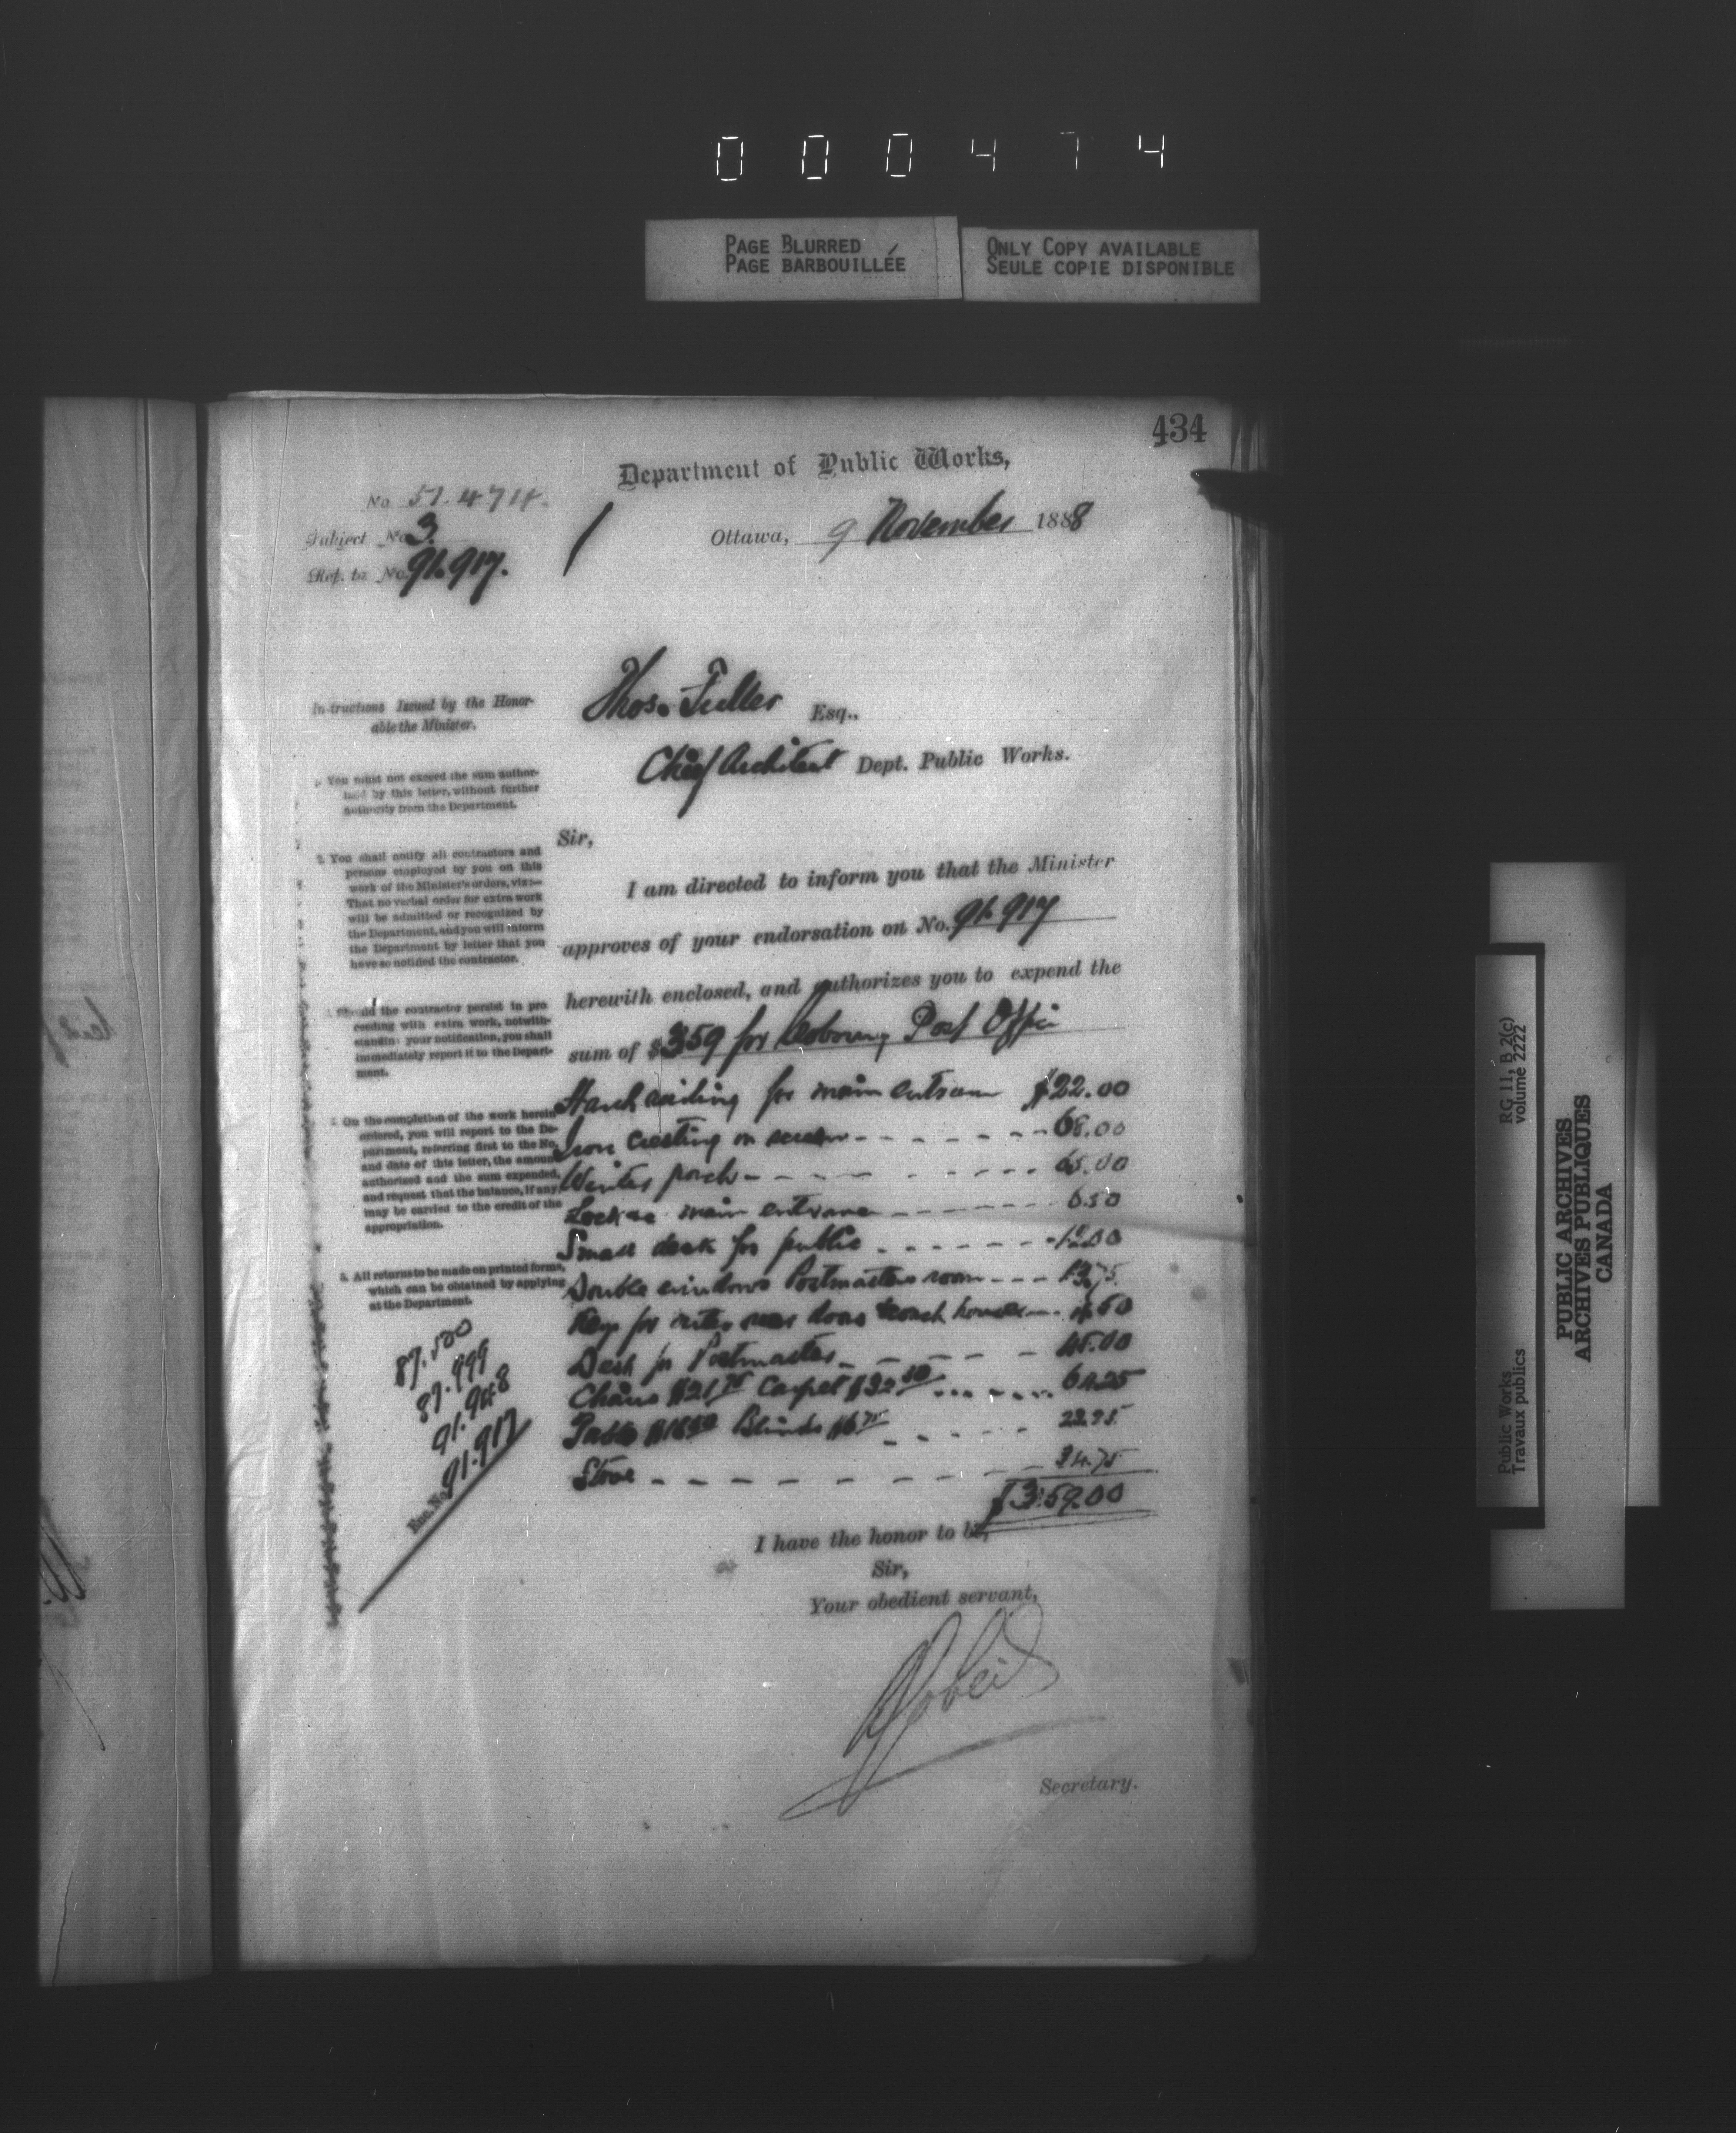 000474
PAGE BLURRED
PAGE BARBOUILLÉE
ONLY COPY AVAILABLE
SEULE COPIE DISPONIBLE
434
Department of Public Works,
No 51.474
Subject No 3.
Ref. to No. 91.917.
Ottawa, 9 November 1888
Thos. Fuller Esq.,
Chief Architect Dept. Public Works.
Instructions Issued by the Honor-
able the Minister.
1. You must not exceed the sum author-
ized by this letter, without further
authority from the Department.
2. You shall notify all contractors and
persons employed by you on this
work of the Minister's orders, viz:—
That no verbal order for extra work
will be admitted or recognized by
the Department, and you will inform
the Department by letter that you
have so notified the contractor.
Should the contractor persist in pro-
ceeding with extra work, notwith-
standing your notification, you shall
immediately report it to the Depart-
ment.
On the completion of the work herein
ordered, you will report to the De-
partment, referring first to the No.
and date of this letter, the amount
authorized and the sum expended,
and request that the balance, if any
may be carried to the credit of the
appropriation.
5. All returns to be made on printed forms,
which can be obtained by applying
at the Department.
87.500
87.999
91.948
Enc. No. 91.917
Sir,
I am directed to inform you that the Minister
approves of your endorsation on No. 91.917
herewith enclosed, and authorizes you to expend the
sum of $359 for Cobourg Post Office
Hand railing for main entrance $22.00
Iron cresting on screen - - - - - - 68.00
Winter porch - - - - - - 65.00
Lock main entrance - - - - - - 6.50
Small desk for public - - - - - - 12.00
Double windows Postmasters room - - - 13.75
Keys for doors coach house .50
Desk for Postmaster - - - - - 45.00
Chairs $21.75 Carpet $32.50 - - - - 54.25
Table Blinds $6.75 - - - - -
Stove - - - - - - - - 34.75
$359.00
I have the honor to be,
Sir,
Your obedient servant,
A Gobeil
Secretary.
Public Works
Travaux publics
RG 11, B 2(c)
volume 2222
PUBLIC ARCHIVES
ARCHIVES PUBLIQUES
CANADA